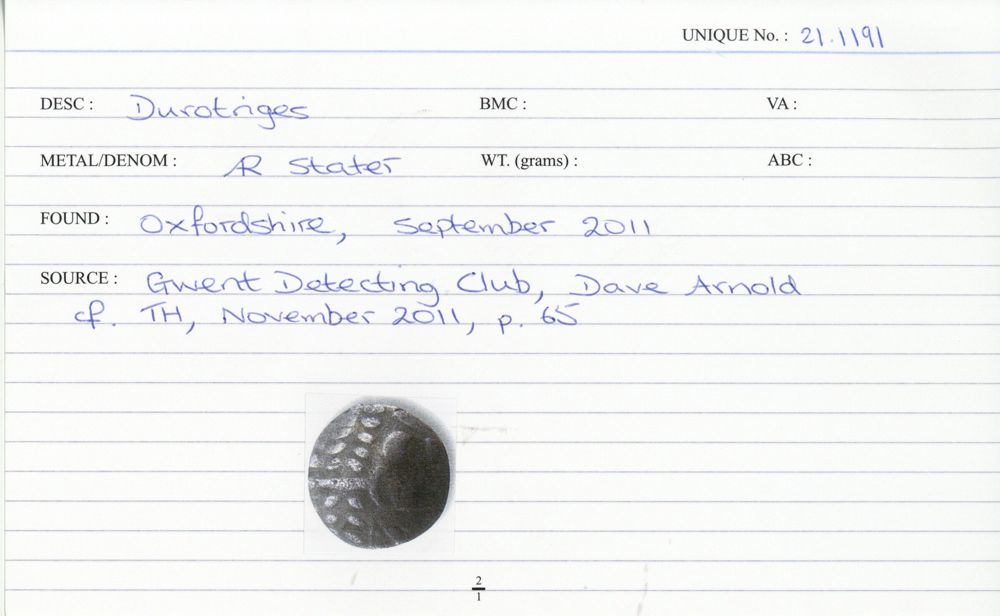 UNIQUE No. : 21.1191
DESC : Durotriges BMC : VA :
METAL/DENOM : AR Stater WT. (grams) : ABC :
FOUND : Oxfordshire, September 2011
SOURCE : Gwent Detecting Club, Dave Arnold
cf. TH, November 2011, p. 65
2
1